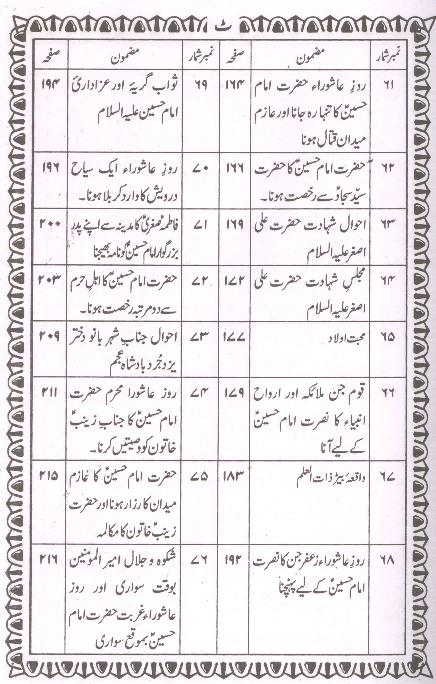 ث
نمبر شمار مضمون صفحہ
۶۱ روزِ عاشوراء حضرت امام ۱۶۴
حسینؑ کا تنہا رہ جانا اور عازم
میدان قتال ہونا
۶۲ حضرت امام حسینؑ کا حضرت ۱۶۶
سیّد سجادؑ سے رخصت ہونا۔
۶۳ احوال شہادت حضرت علی ۱۶۹
اصغر علیہ السلام
۶۴ مجلسِ شہادت حضرت علی ۱۷۲
اصغر علیہ السلام
۶۵ محبت اولاد ۱۷۷
۶۶ قوم جن ملائکہ اور ارواح ۱۷۹
انبیاء کا نصرت امام حسینؑ
کے لیے آنا
۶۷ واقعۂ بیئر ذات العلم ۱۸۳
۶۸ روزِ عاشوراء زعفر جن کا نصرت ۱۹۲
امام حسینؑ کے لیے پہنچنا
نمبر شمار مضمون صفحہ
۶۹ ثواب گریہ اور عزاداریٔ ۱۹۴
امام حسین علیہ السلام
۷۰ روزِ عاشوراء ایک سیاح ۱۹۶
درویش کا وارد کربلا ہونا۔
۷۱ فاطمہ صغریٰؑ کا مدینہ سے اپنے پدر ۲۰۰
بزرگوار امام حسینؑ کو نامہ بھیجنا
۷۲ حضرت امام حسینؑ کا اہل حرم ۲۰۳
سے دو مرتبہ رخصت ہونا۔
۷۳ احوال جناب شہر بانو دختر ۲۰۹
یزد جُرد بادشاہ عجم
۷۴ روز عاشورا محرم حضرت ۲۱۱
امام حسینؑ کا جناب زینبؑ
خاتون کو وصیتیں کرنا۔
۷۵ حضرت امام حسینؑ کا عازم ۲۱۵
میدان کارزار ہونا اور حضرت
زینبؑ خاتون کا مکالمہ
۷۶ شکوہ و جلال امیر المومنین ۲۱۶
بوقت سواری اور روز
عاشوراء غربت حضرت امام
حسینؑ بموقع سواری